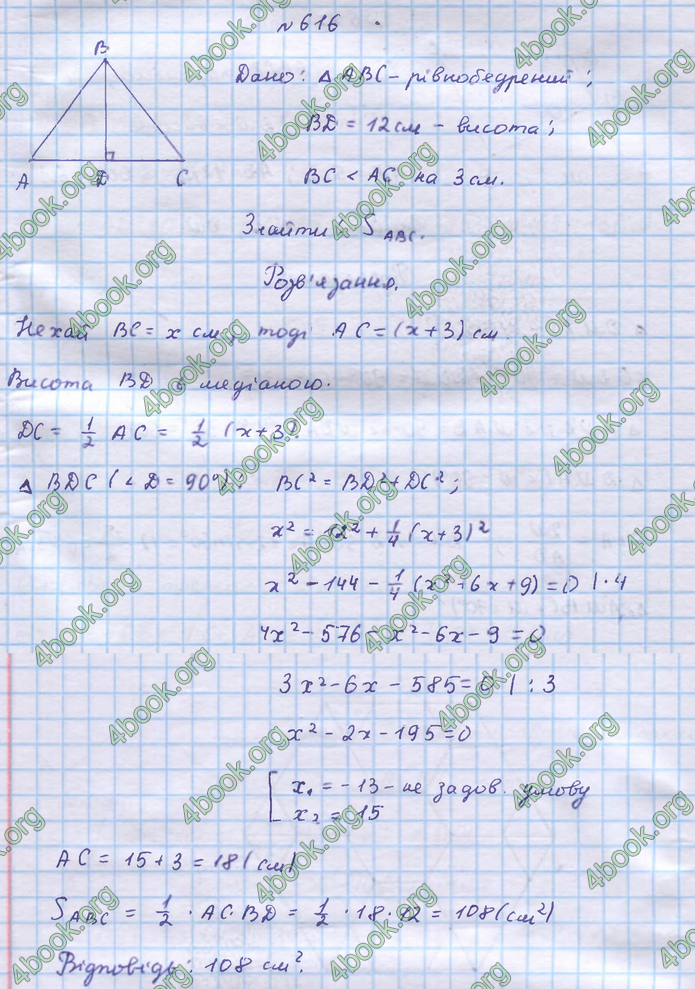 №616
B
A D C
Дано: △ABC – рівнобедрений;
BD = 12 см – висота;
BC < AC на 3 см.
Знайти: S ABC.
Розв'язання.
Нехай BC = x см, тоді AC = (x + 3) см.
Висота BD є медіаною.
DC = 1/2 AC = 1/2 (x + 3).
△ BDC (∠D = 90°): BC² = BD² + DC²;
x² = 12² + 1/4 (x + 3)²
x² - 144 - 1/4 (x² + 6x + 9) = 0 | · 4
4x² - 576 - x² - 6x - 9 = 0
3x² - 6x - 585 = 0 | : 3
x² - 2x - 195 = 0
x₁ = -13 – не задов. умову
x₂ = 15
AC = 15 + 3 = 18 (см)
S ABC = 1/2 · AC · BD = 1/2 · 18 · 12 = 108 (см²)
Відповідь: 108 см².
4book.org